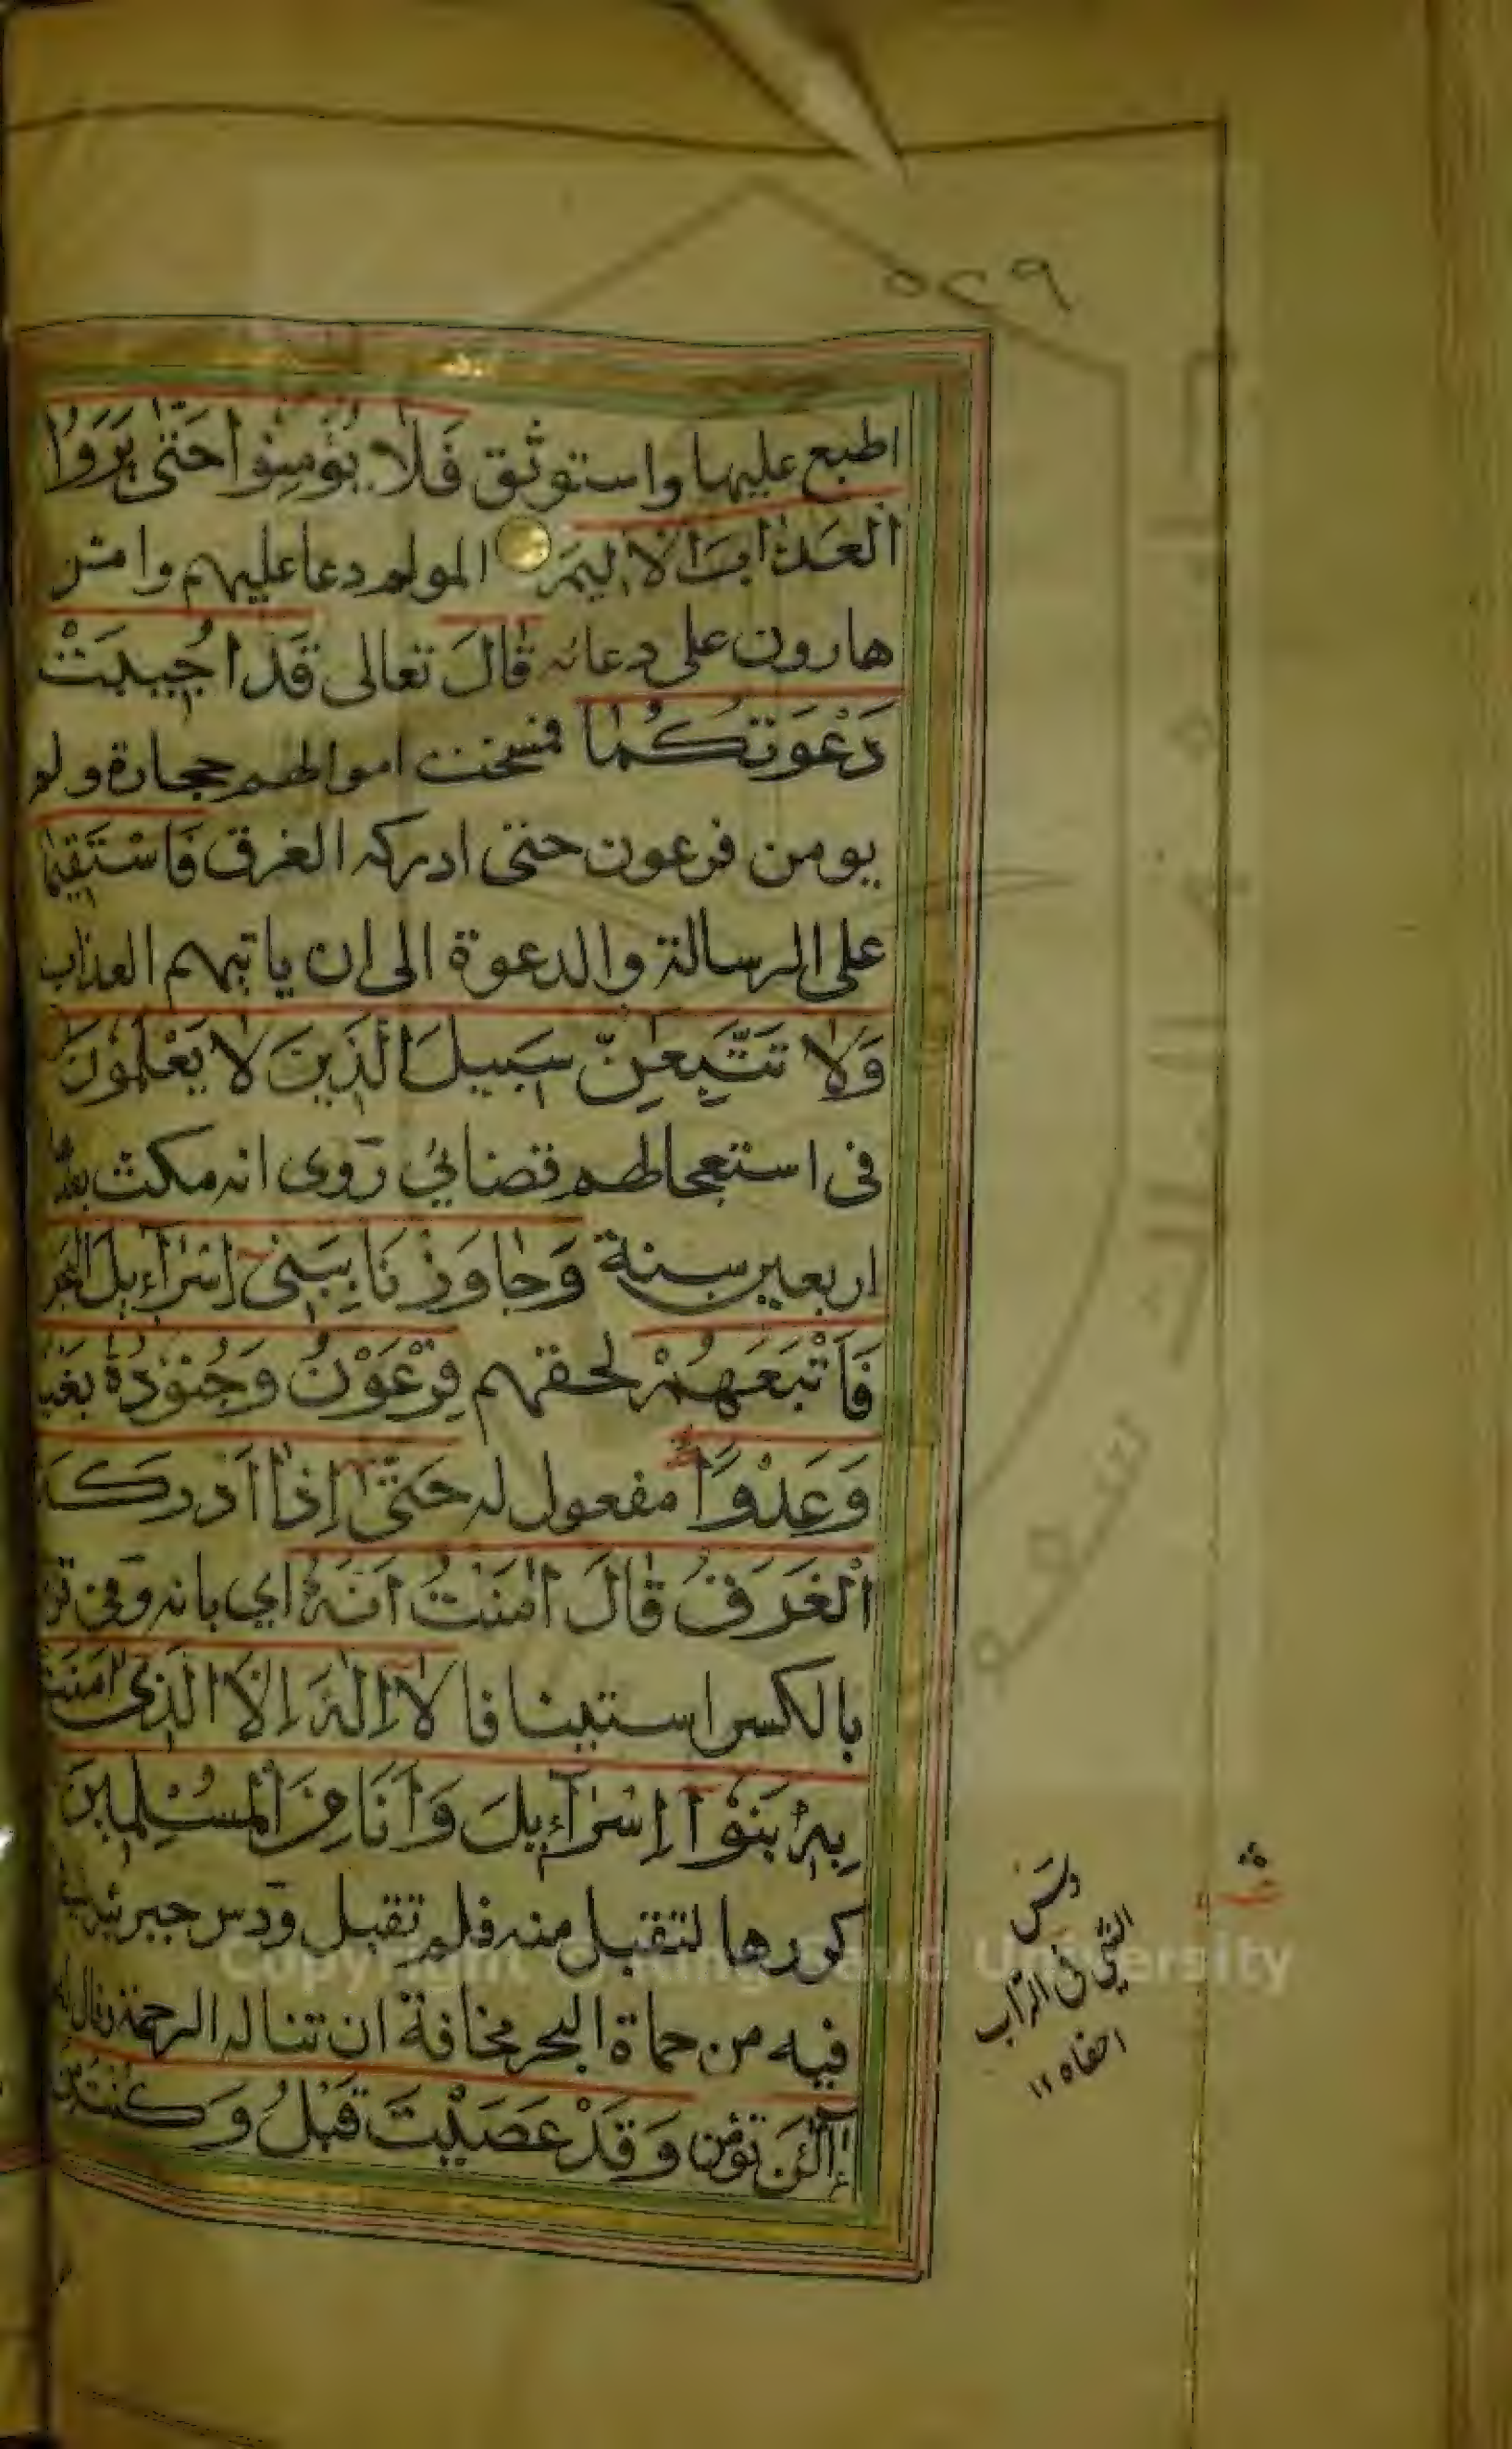 ٥٢٩
اطبع عليها واستوثق فَلَا يُؤْمِنُوا حَتّٰى يَرَوُا
الْعَذَابَ الْاَلِيمَ المولم دعا عليهم وامن
هارون على دعائه قَالَ تعالى قَدْ اُجِيبَتْ
دَعْوَتُكُمَا فمسخت اموالهم حجارة ولم
يومن فرعون حتى ادركه الغرق فَاسْتَقِيمَا
على الرسالة والدعوة الى ان ياتيهم العذاب
وَلَا تَتَّبِعَٰنِّ سَبِيلَ الَّذِينَ لَا يَعْلَمُونَ
فى استعجالهم قضائي روى انه مكث بعدها
اربعين سنة وَجَاوَزْنَا بِبَنِىٓ اِسْرَآءِيلَ الْبَحْرَ
فَاَتْبَعَهُمْ لحقهم فِرْعَوْنُ وَجُنُودُهُ بَغْيًا
وَعَدْوًا مفعول له حَتّٰىٓ اِذَآ اَدْرَكَهُ
الْغَرَقُ قَالَ اٰمَنْتُ اَنَّهُ اي بانه وفى
بالكسر استينافا لَآ اِلٰهَ اِلَّا الَّذِىٓ اٰمَنَتْ
بِهِ بَنُوٓا اِسْرَآءِيلَ وَاَنَا مِنَ الْمُسْلِمِينَ
كررها لتقبل منه فلم تقبل ودس جبرئيل
فيه من حماة البحر مخافة ان تناله الرحمة وقال له
آٰلْـٰٔنَ تؤمن وَقَدْ عَصَيْتَ قَبْلُ وَكُنْتَ مِنَ
ودس
الشي في التراب
اخفاه ١٢
Copyright © King Saud University